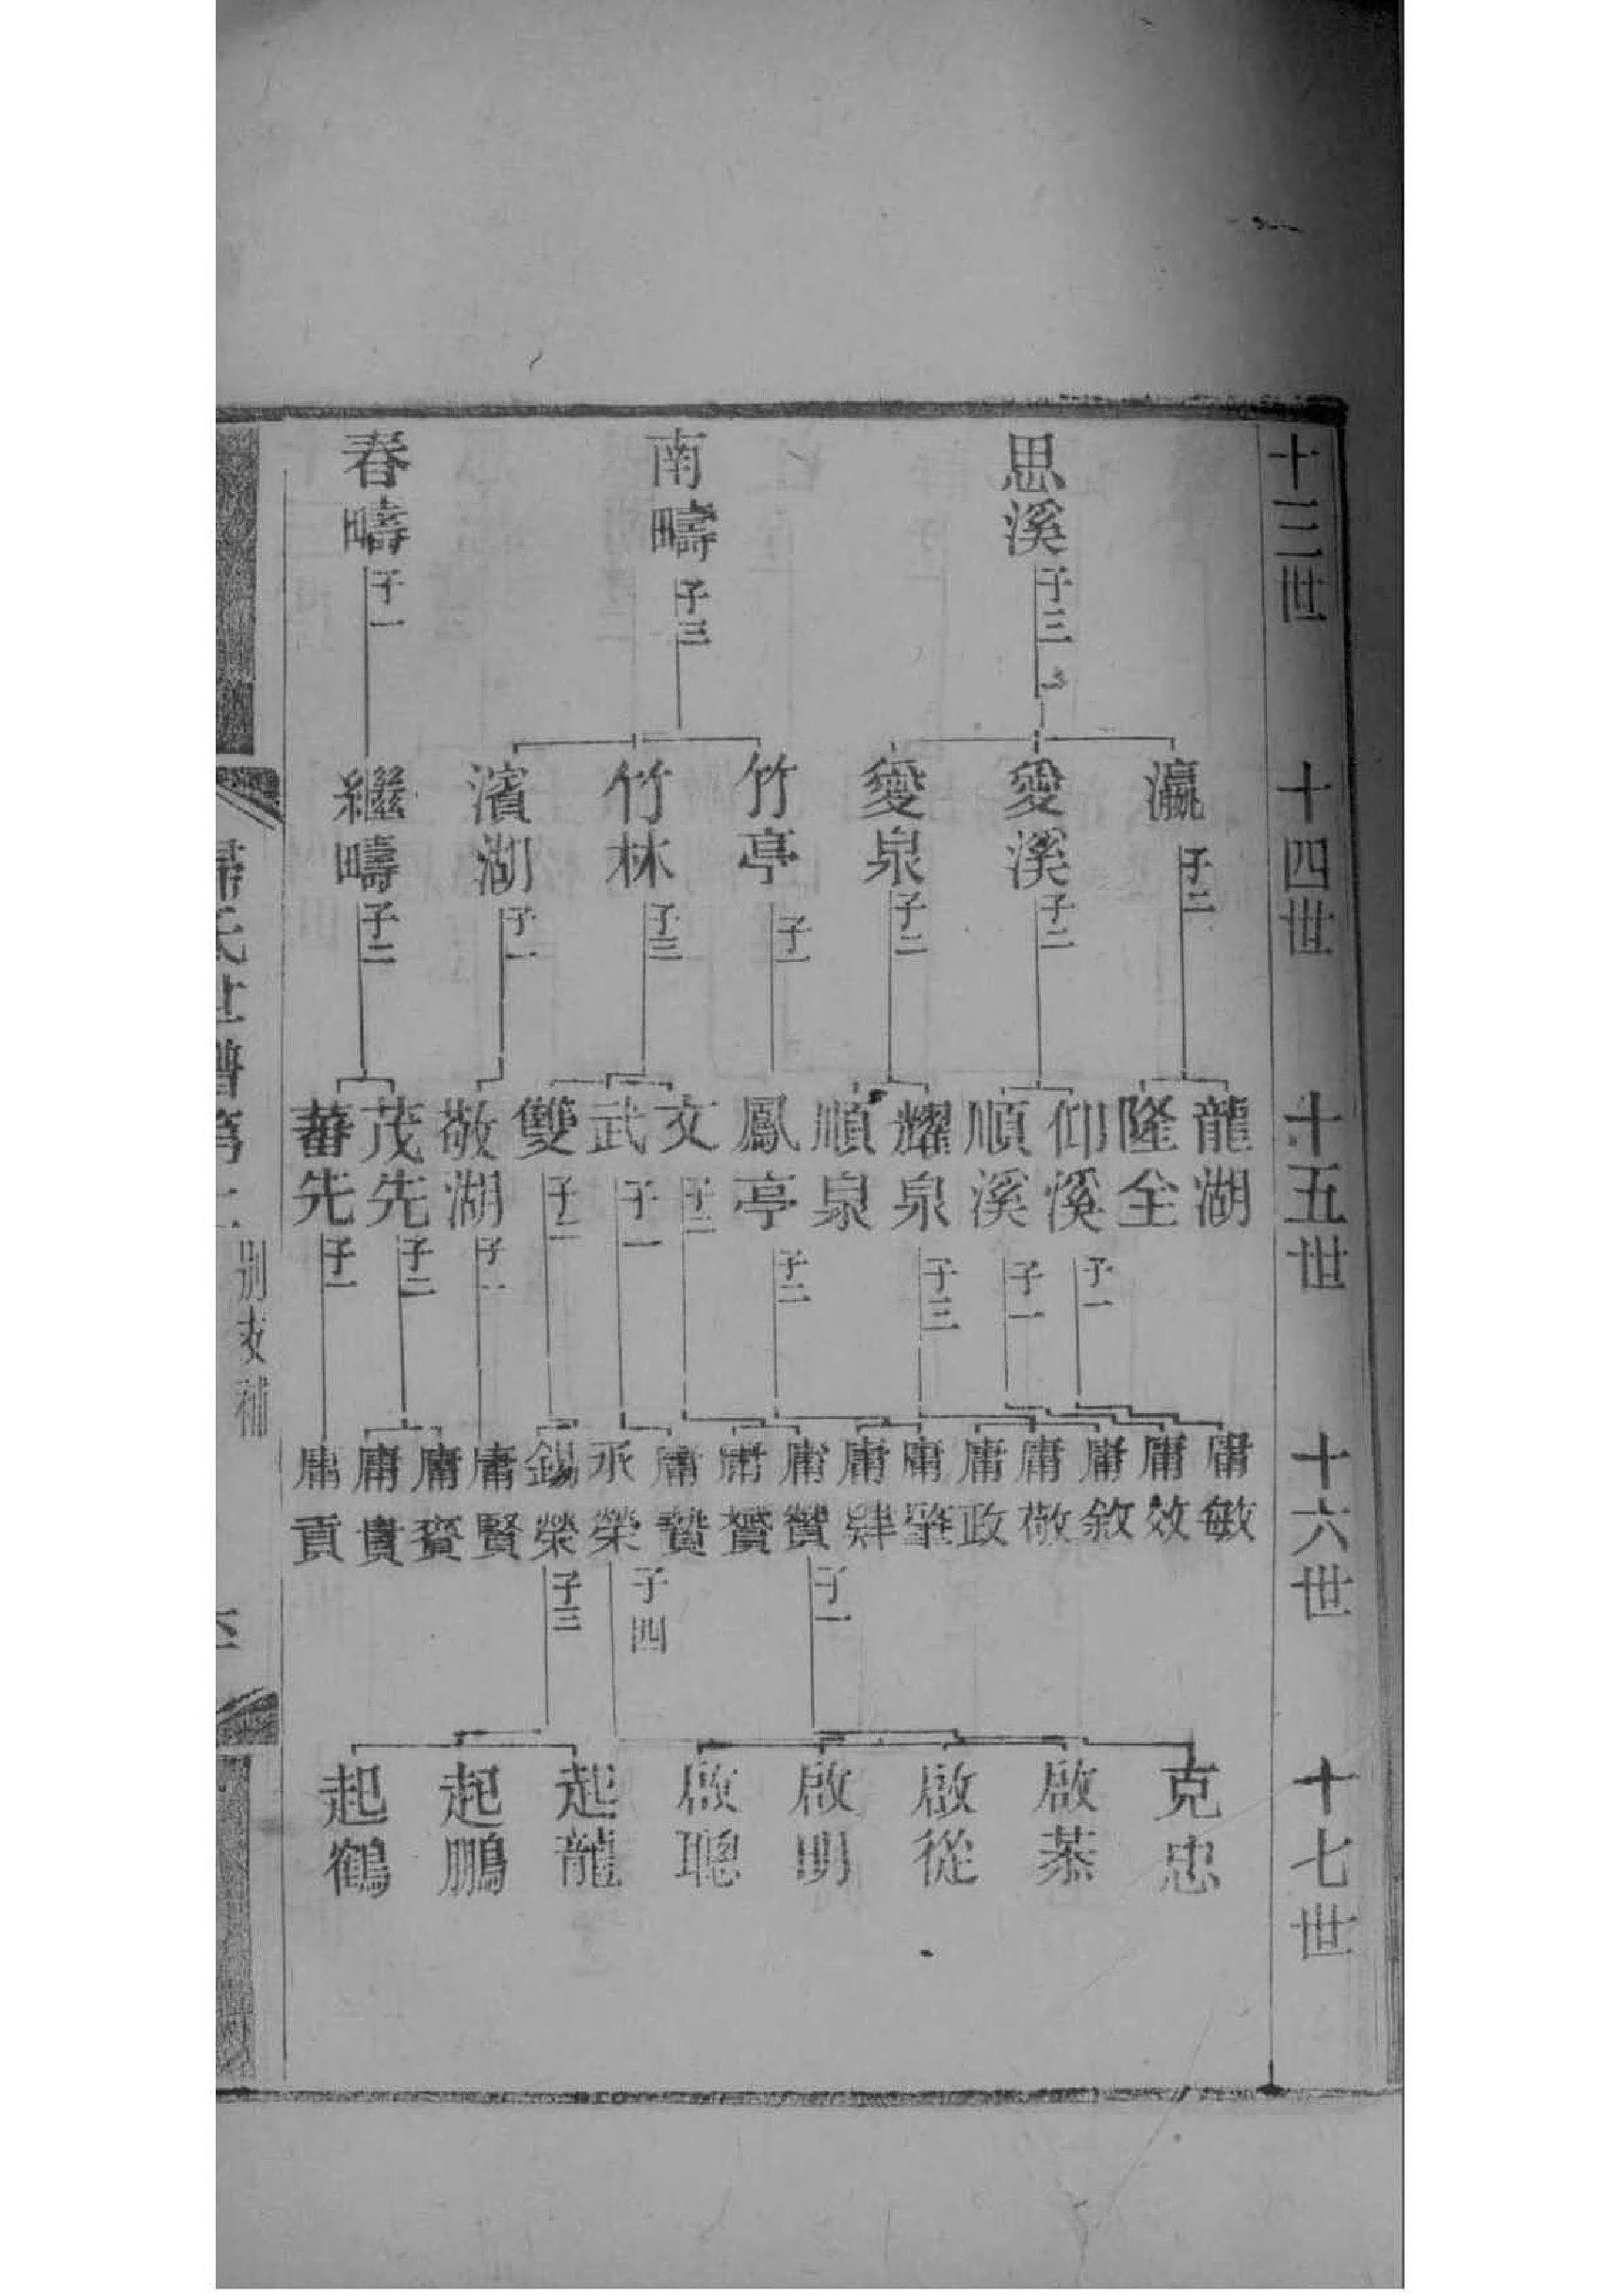 十三世
思溪 子三
南疇 子三
春疇 子一
十四世
瀛 子二
愛溪 子二
愛泉 子二
竹亭 子一
竹林 子三
濱湖 子一
繼疇 子二
十五世
龍湖
隆全
仰溪 子一
順溪 子一
耀泉 子三
順泉
鳳亭 子二
文 子二
武 子一
雙 子二
敬湖 子一
茂先 子二
蕃先 子一
十六世
庸敏
庸效
庸敘
庸敬
庸政
庸肇
庸肆
庸贊 子一
庸贇
庸贄
丞榮 子四
錫榮 子三
庸賢
庸賚
庸貴
庸貢
十七世
克忠
啟恭
啟從
啟明
啟聰
起龍
起鵬
起鶴
氏世譜第
別支補